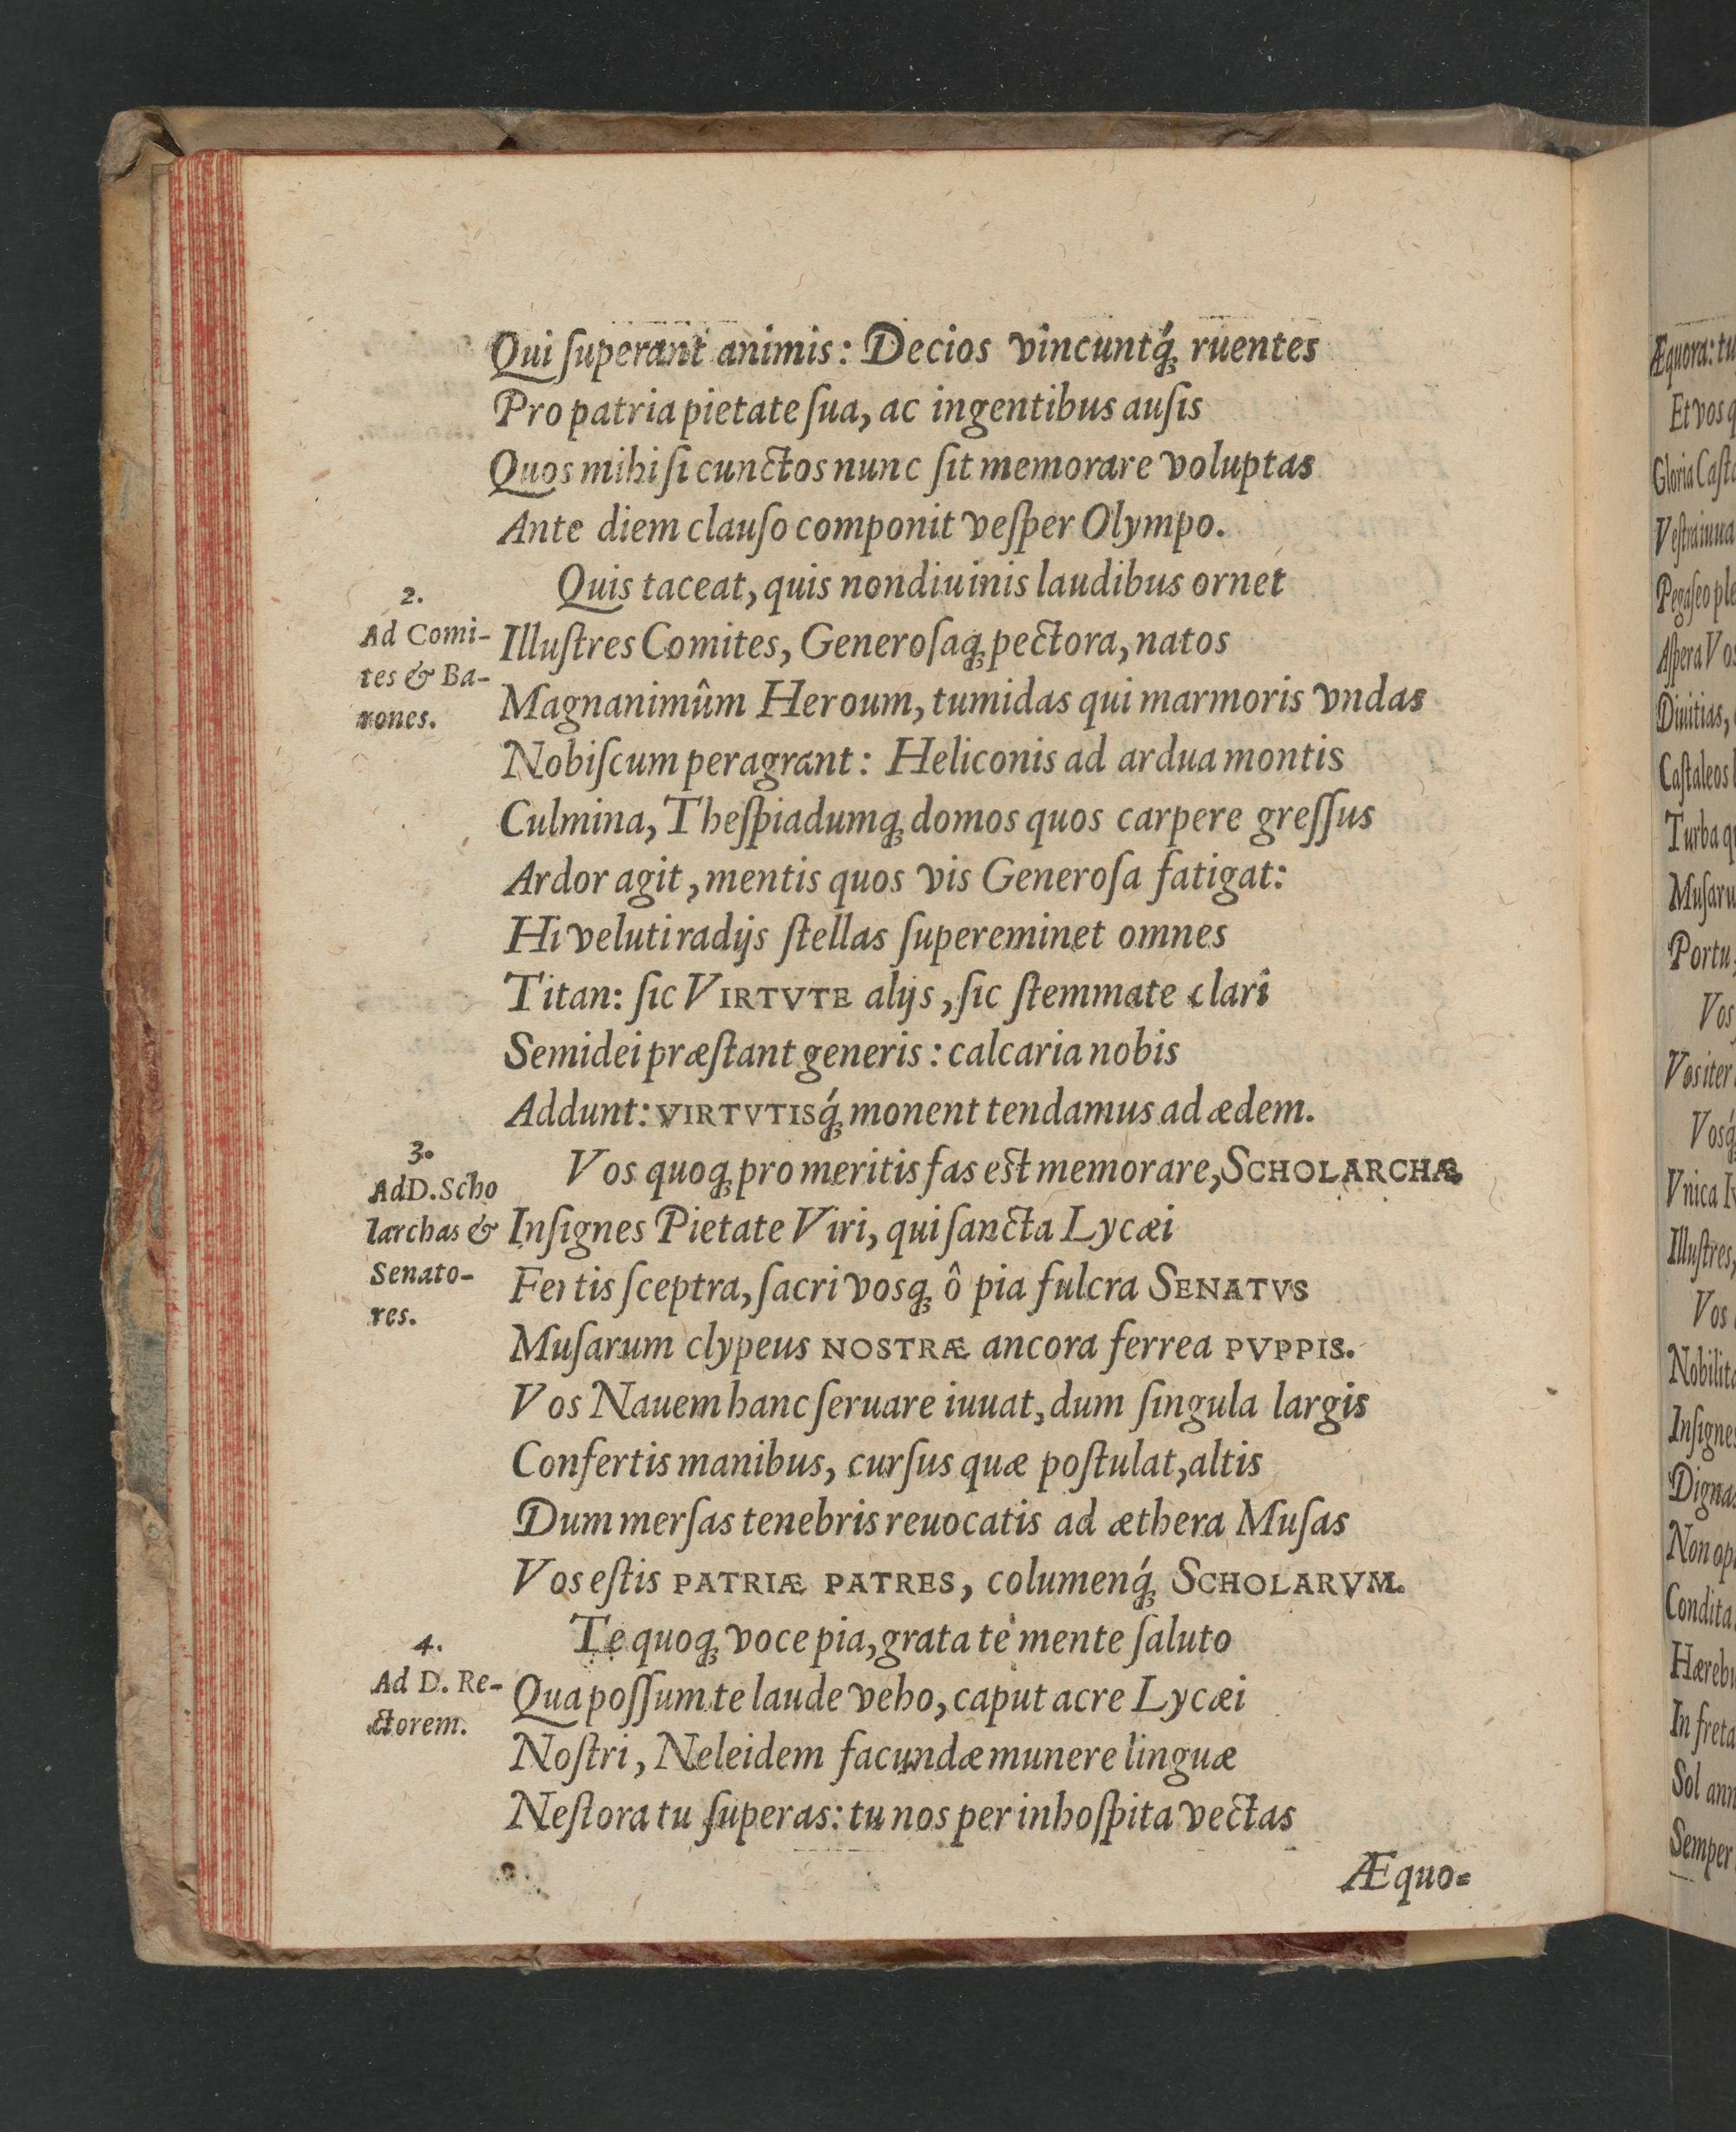 Qui ſuperant animis: Decios vincuntq́ꝫ ruentes
Pro patria pietate ſua, ac ingentibus auſis
Quos mihi ſi cunctos nunc ſit memorare voluptas
Ante diem clauſo componit veſper Olympo.
Quis taceat, quis non diuinis laudibus ornet
2.
Ad Comi-
tes & Ba-
rones.
Illuſtres Comites, Generoſaqꝫ pectora, natos
Magnanimûm Heroum, tumidas qui marmoris vndas
Nobiſcum peragrant: Heliconis ad ardua montis
Culmina, Theſpiadumqꝫ domos quos carpere greſſus
Ardor agit, mentis quos vis Generoſa fatigat:
Hi veluti radijs ſtellas ſupereminet omnes
Titan: ſic VIRTVTE alijs, ſic ſtemmate clari
Semidei præſtant generis: calcaria nobis
Addunt: VIRTVTISq́ꝫ monent tendamus ad ædem.
3.
Ad D. Scho
larchas &
Senato-
res.
Vos quoqꝫ pro meritis fas eſt memorare, SCHOLARCHÆ
Inſignes Pietate Viri, qui ſancta Lycæi
Fertis ſceptra, ſacri vosqꝫ ô pia fulcra SENATVS
Muſarum clypeus NOSTRÆ ancora ferrea PVPPIS.
Vos Nauem hanc ſeruare iuuat, dum ſingula largis
Confertis manibus, curſus quæ poſtulat, altis
Dum merſas tenebris reuocatis ad æthera Muſas
Vos eſtis PATRIÆ PATRES, columenq́ꝫ SCHOLARVM.
4.
Ad D. Re-
ctorem.
Te quoqꝫ voce pia, grata te mente ſaluto
Qua poſſum te laude veho, caput acre Lycæi
Noſtri, Neleidem facundæ munere linguæ
Neſtora tu ſuperas: tu nos per inhoſpita vectas
Æquo-
Æquora: tu
Et vos
Vos
Vos iter
Vnica
Illuſtres,
Vos
In freta
Sol
Semper